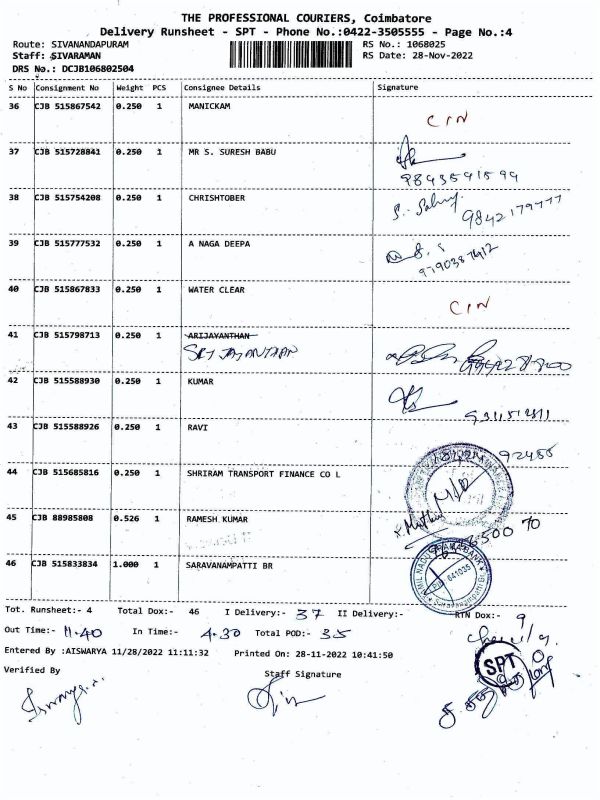 THE PROFESSIONAL COURIERS, Coimbatore
Delivery Runsheet - SPT - Phone No.:0422-3505555 - Page No.:4
Route: SIVANANDAPURAM RS No.: 1068025
Staff: SIVARAMAN RS Date: 28-Nov-2022
DRS No.: DCJB106802504
S No Consignment No Weight PCS Consignee Details Signature
36 CJB 515867542 0.250 1 MANICKAM
CIN
37 CJB 515728841 0.250 1 MR S. SURESH BABU
9843591599
38 CJB 515754208 0.250 1 CHRISHTOBER
9842179777
39 CJB 515777532 0.250 1 A NAGA DEEPA
40 CJB 515867833 0.250 1 WATER CLEAR
CIN
41 CJB 515798713 0.250 1 ARIJAYANTHAN
42 CJB 515588930 0.250 1 KUMAR
43 CJB 515588926 0.250 1 RAVI
44 CJB 515685816 0.250 1 SHRIRAM TRANSPORT FINANCE CO L
45 CJB 88985808 0.526 1 RAMESH KUMAR
46 CJB 515833834 1.000 1 SARAVANAMPATTI BR
641035
Tot. Runsheet:- 4 Total Dox:- 46 I Delivery:- 37 II Delivery:- RTN Dox:- 9
Out Time:- 11.40 In Time:- 4.30 Total POD:- 35
Entered By :AISWARYA 11/28/2022 11:11:32 Printed On: 28-11-2022 10:41:50
Verified By Staff Signature
SPT